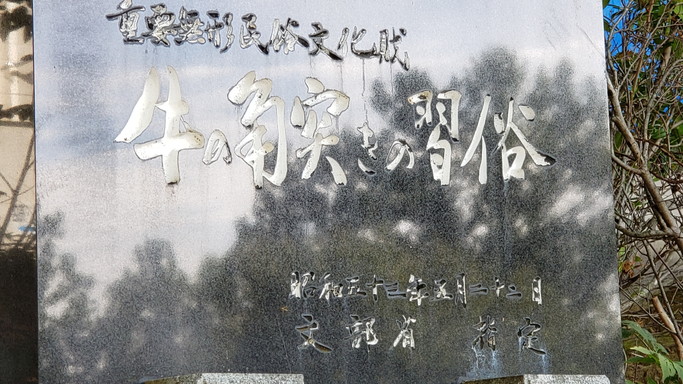 重要無形民俗文化財
牛の角突きの習俗
昭和五十三年五月二十二日
文部省 指定